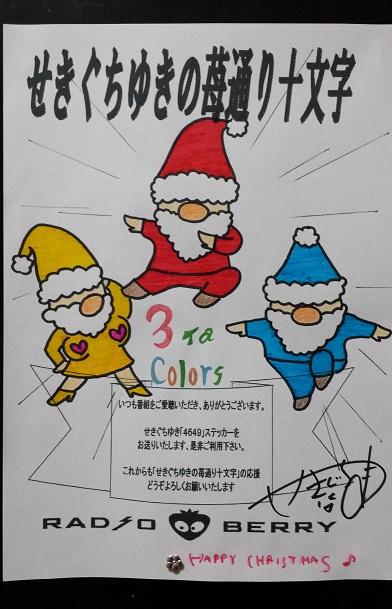 せきぐちゆきの苺通り十文字
3
Colors
いつも番組をご愛聴いただき、ありがとうございます。
せきぐちゆき「4649」ステッカーを
お送りいたします、是非ご利用下さい。
これからも「せきぐちゆきの苺通り十文字」の応援
どうぞよろしくお願いいたします
RADIO BERRY
HAPPY CHRISTMAS ♪